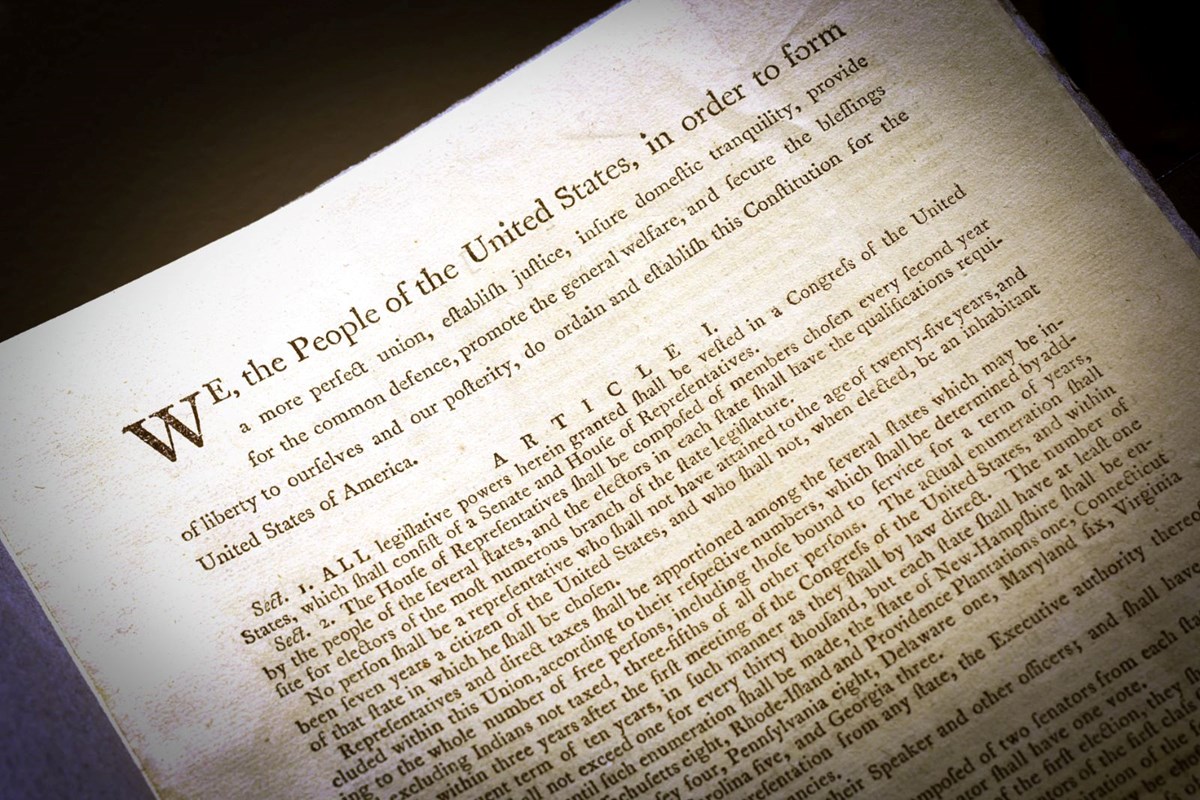 WE, the People of the United States, in order to form
a more perfect union, eſtabliſh juſtice, inſure domeſtic tranquility, provide
for the common defence, promote the general welfare, and ſecure the bleſſings
of liberty to ourſelves and our poſterity, do ordain and eſtabliſh this Conſtitution for the
United States of America.
ARTICLE I.
Sect. 1. ALL legiſlative powers herein granted ſhall be veſted in a Congreſs of the United
States, which ſhall conſiſt of a Senate and Houſe of Repreſentatives.
Sect. 2. The Houſe of Repreſentatives ſhall be compoſed of members choſen every ſecond year
by the people of the ſeveral ſtates, and the electors in each ſtate ſhall have the qualifications requi-
ſite for electors of the moſt numerous branch of the ſtate legiſlature.
No perſon ſhall be a repreſentative who ſhall not have attained to the age of twenty-five years, and
been ſeven years a citizen of the United States, and who ſhall not, when elected, be an inhabitant
of that ſtate in which he ſhall be choſen.
Repreſentatives and direct taxes ſhall be apportioned among the ſeveral ſtates which may be in-
cluded within this Union, according to their reſpective numbers, which ſhall be determined by add-
ing to the whole number of free perſons, including thoſe bound to ſervice for a term of years,
excluding Indians not taxed, three-fifths of all other perſons. The actual enumeration ſhall
within three years after the firſt meeting of the Congreſs of the United States, and within
ent term of ten years, in ſuch manner as they ſhall by law direct. The number of
all not exceed one for every thirty thouſand, but each ſtate ſhall have at leaſt one
until ſuch enumeration ſhall be made, the ſtate of New-Hampſhire ſhall be en-
chuſetts eight, Rhode-Iſland and Providence Plantations one, Connecticut
ey four, Pennſylvania eight, Delaware one, Maryland ſix, Virginia
rolina five, and Georgia three.
reſentation from any ſtate, the Executive authority there
ncies.
their Speaker and other officers; and ſhall have
mpoſed of two ſenators from each ſta
ator ſhall have one vote.
of the firſt election, they ſh
ators of the firſt claſs
piration of the